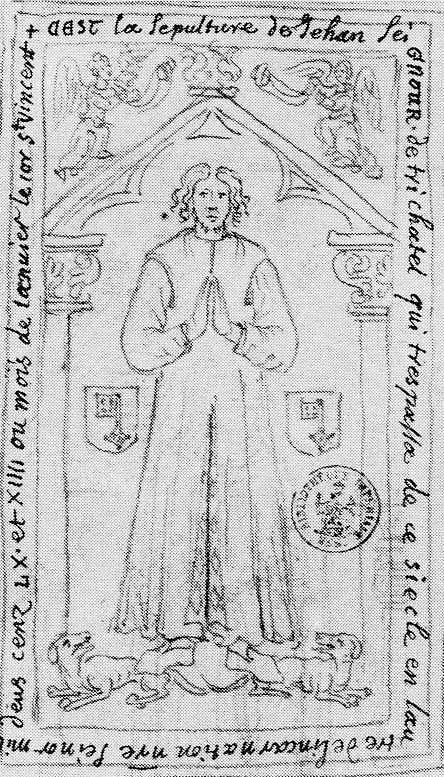 + DBƎƧ la Sepulture de Jehan Sei
GNOUR. de trichatel qui trespassa de ce siecle en lau
tre delincarnation nre seinor mil
deus cenz LX. et XIIII ou mois de Ianuier le ior St Vincent